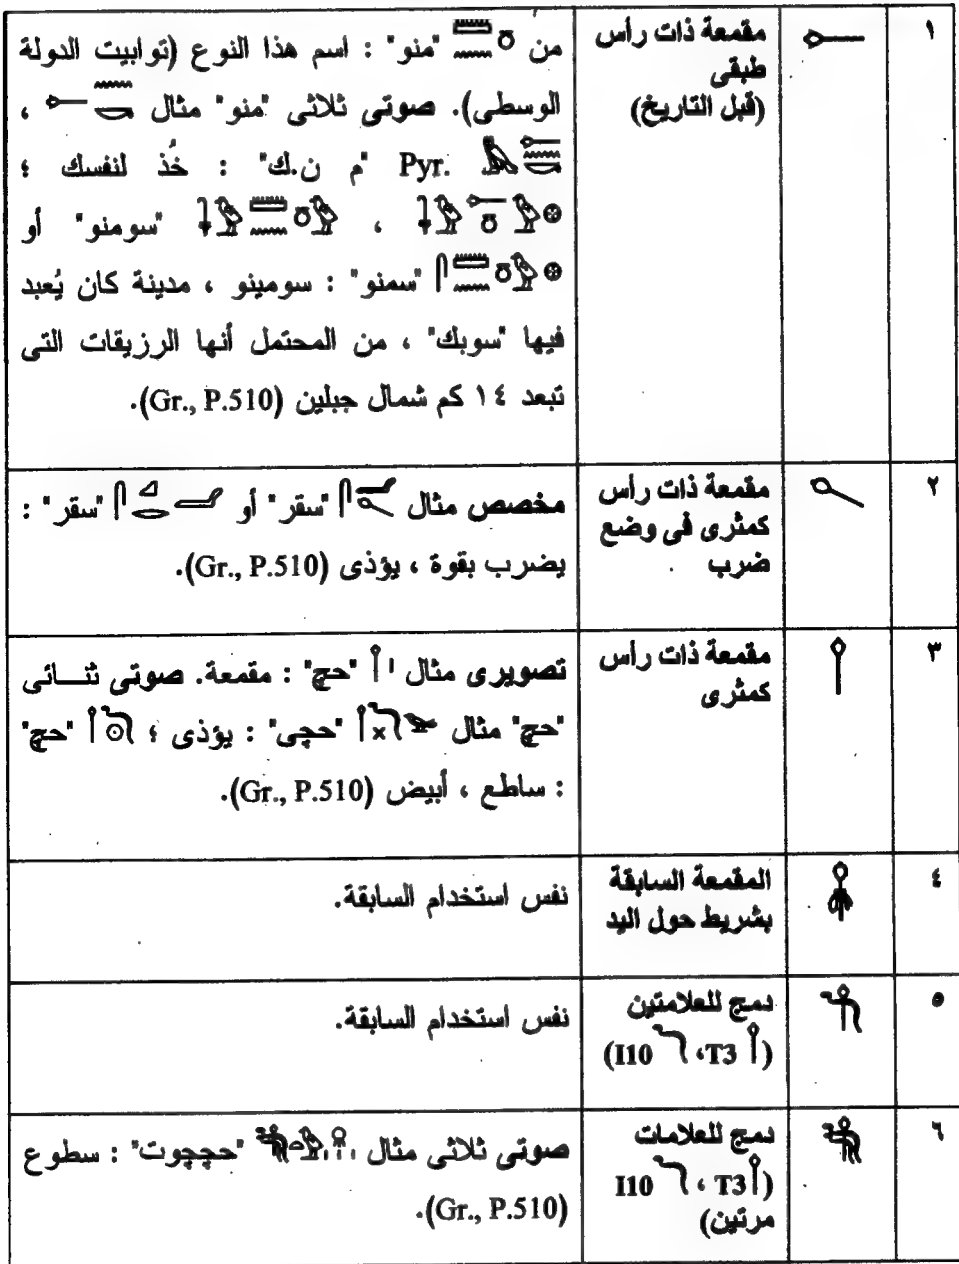 ١
مقمعة ذات رأس
طبقى
(قبل التاريخ)
من 𓏌𓏠𓈖 "منو" : اسم هذا النوع (توابيت الدولة
الوسطى). صوتى ثلاثى "منو" مثال ،
Pyr. "م ن.ك" : خُذ لنفسك ؛
، "سومنو" أو
"سمنو" : سومينو ، مدينة كان يُعبد
فيها "سوبك" ، من المحتمل أنها الرزيقات التى
تبعد ١٤ كم شمال جبلين (Gr., P.510).
٢
مقمعة ذات رأس
كمثرى فى وضع
ضرب
مخصص مثال "سقر" أو "سقر" :
يضرب بقوة ، يؤذى (Gr., P.510).
٣
مقمعة ذات رأس
كمثرى
تصويرى مثال "حچ" : مقمعة. صوتى ثنـــائى
"حچ" مثال "حچى" : يؤذى ؛ "حچ"
: ساطع ، أبيض (Gr., P.510).
٤
المقمعة السابقة
بشريط حول اليد
نفس استخدام السابقة.
٥
دمج للعلامتين
(𓌉 T3، 𓆓 I10)
نفس استخدام السابقة.
٦
دمج للعلامات
(𓌉 T3 ، 𓆓 I10
مرتين)
صوتى ثلاثى مثال "حچچوت" : سطوع
(Gr., P.510).